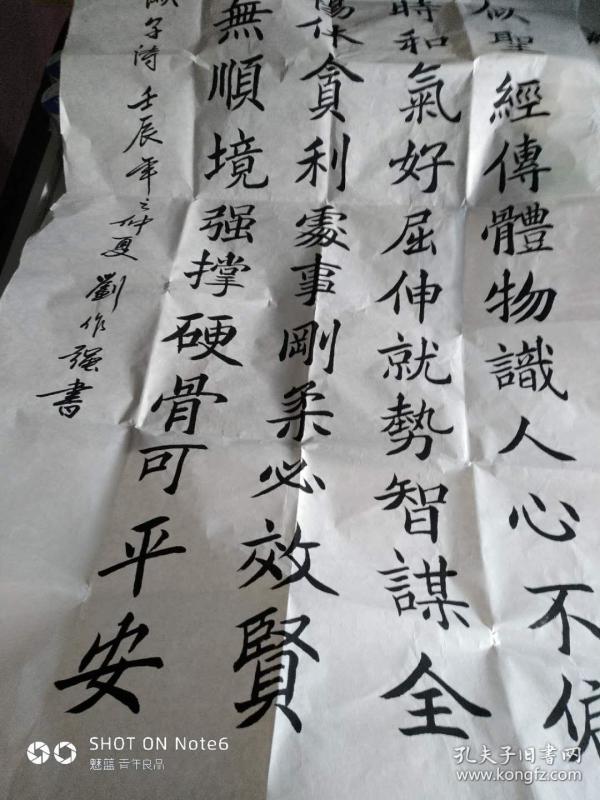 似聖經傳體物識人心不偏
時和氣好屈伸就勢智謀全
休貪利處事剛柔必效賢
無順境强撑硬骨可平安
子詩 壬辰年之仲夏 劉作强書
SHOT ON Note6
魅蓝 青年良品
孔夫子旧书网
www.kongfz.com